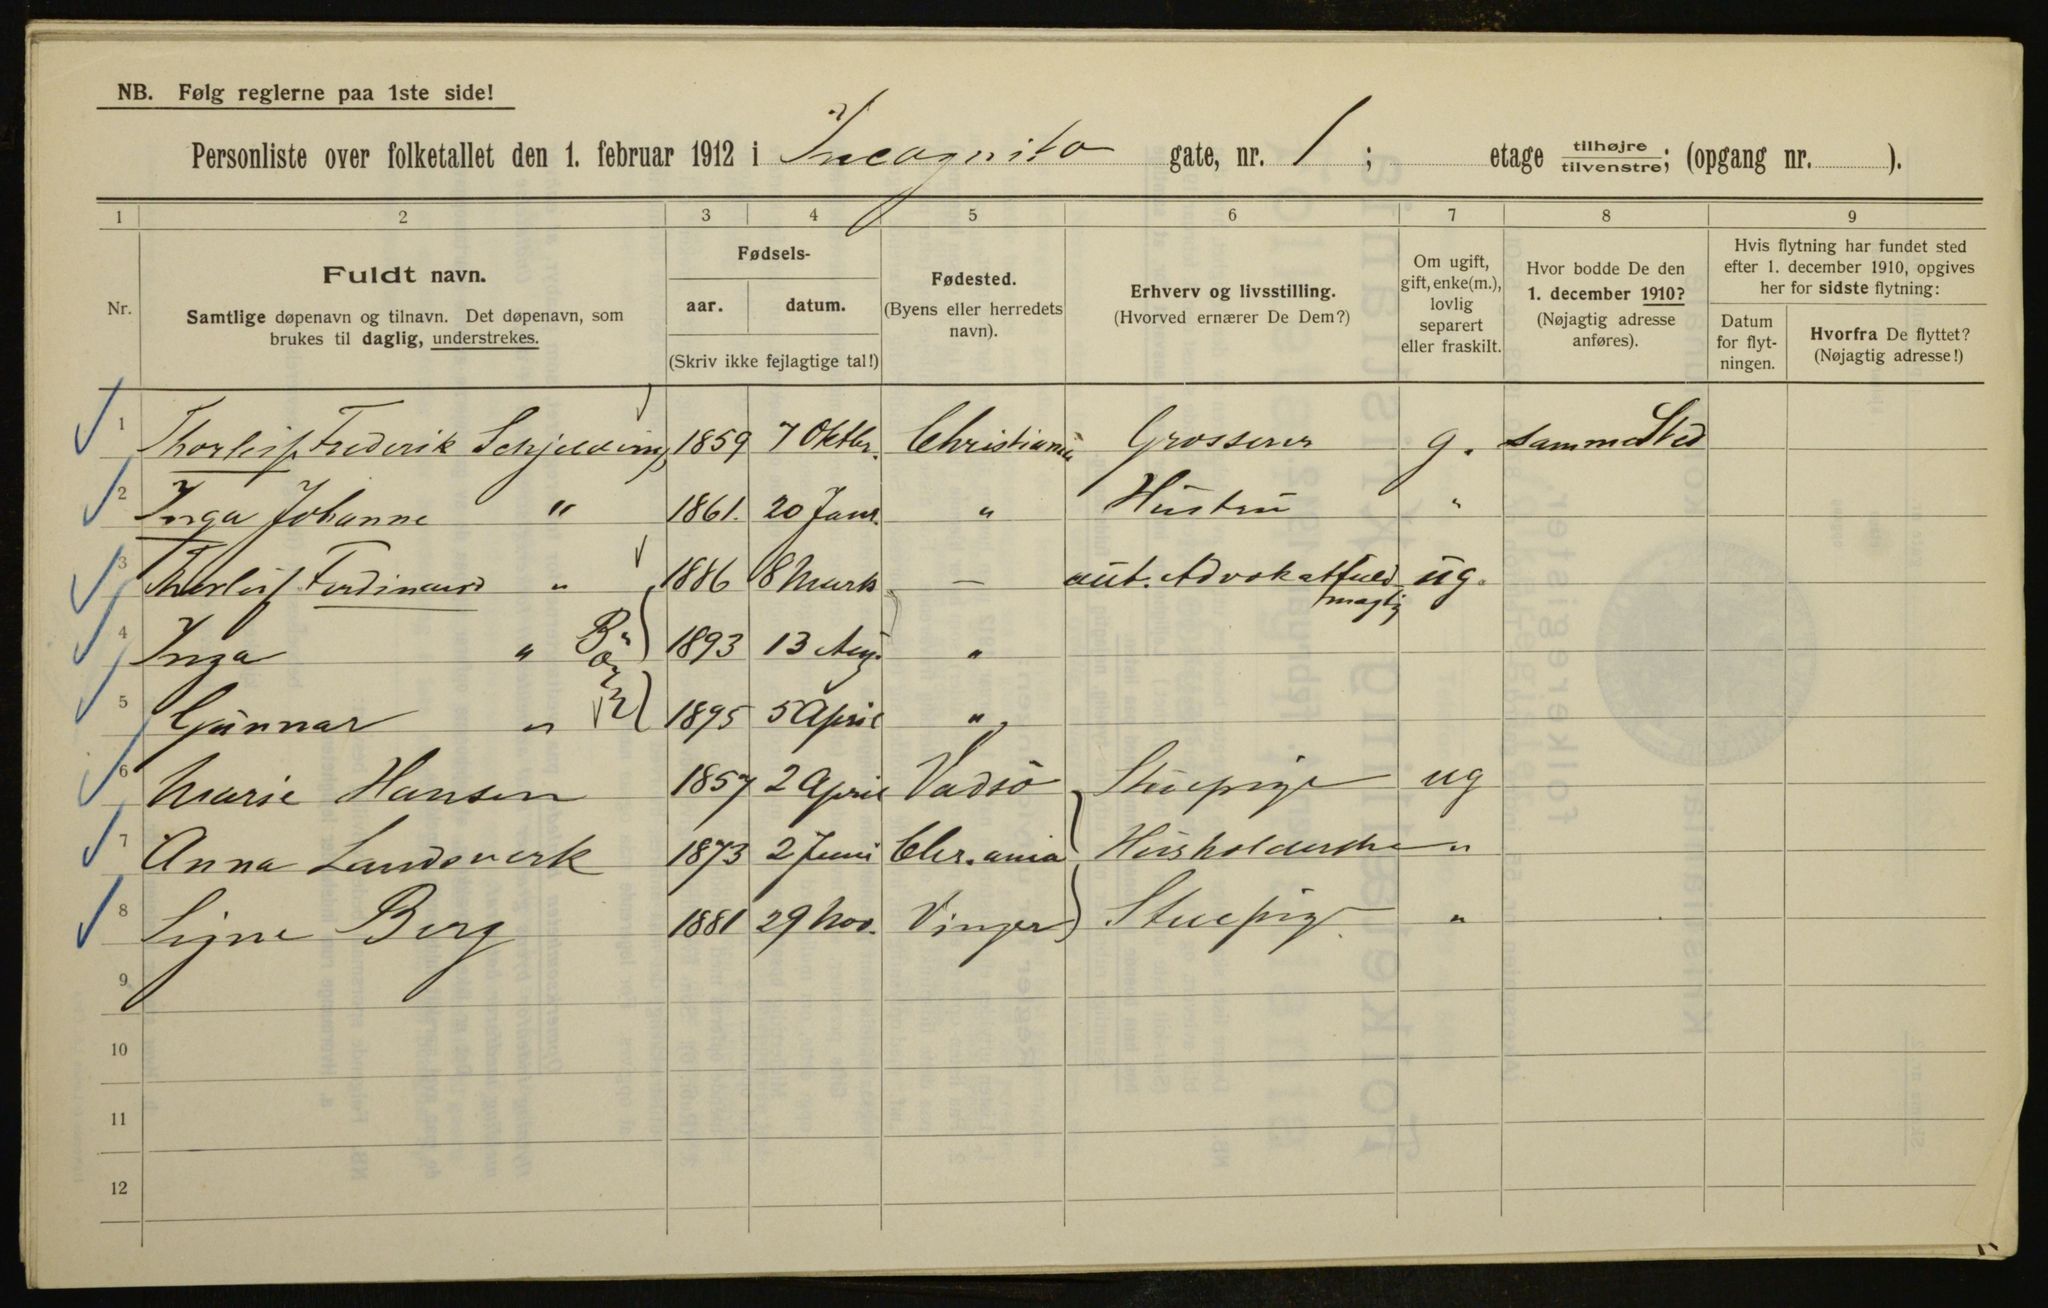 NB. Følg reglerne paa 1ste side!
Personliste over folketallet den 1. februar 1912 i Incognito gate, nr. 1; etage tilhøjre/tilvenstre; (opgang nr. ).
1 2 3 4 5 6 7 8 9
Nr.
Fuldt navn.
Samtlige døpenavn og tilnavn. Det døpenavn, som
brukes til daglig, understrekes.
Fødsels-
aar. datum.
(Skriv ikke fejlagtige tal!)
Fødested.
(Byens eller herredets
navn).
Erhverv og livsstilling.
(Hvorved ernærer De Dem?)
Om ugift,
gift, enke(m.),
lovlig
separert
eller fraskilt.
Hvor bodde De den
1. december 1910?
(Nøjagtig adresse
anføres).
Hvis flytning har fundet sted
efter 1. december 1910, opgives
her for sidste flytning:
Datum
for flyt-
ningen.
Hvorfra De flyttet?
(Nøjagtig adresse!)
1 Thorleif Frederik Schjelderup 1859 7 Oktbr. Christiania Grosserer g. samme Sted
2 Inga Johanne " 1861. 20 Janr. " Hustru "
3 Thorleif Ferdinand " 1886 8 Marts — aut. Advokatfuld
mægtig ug.
4 Inga " Bö 1893 13 Aug. "
5 Gunnar " rn 1895 5 April "
6 Marie Hansen 1857 2 April Vadsö Stuepige ug
7 Anna Landsverk 1873 2 Juni Chr.ania Husholderske "
8 Signe Berg 1881 29 Nov. Vinger Stuepige "
9
10
11
12